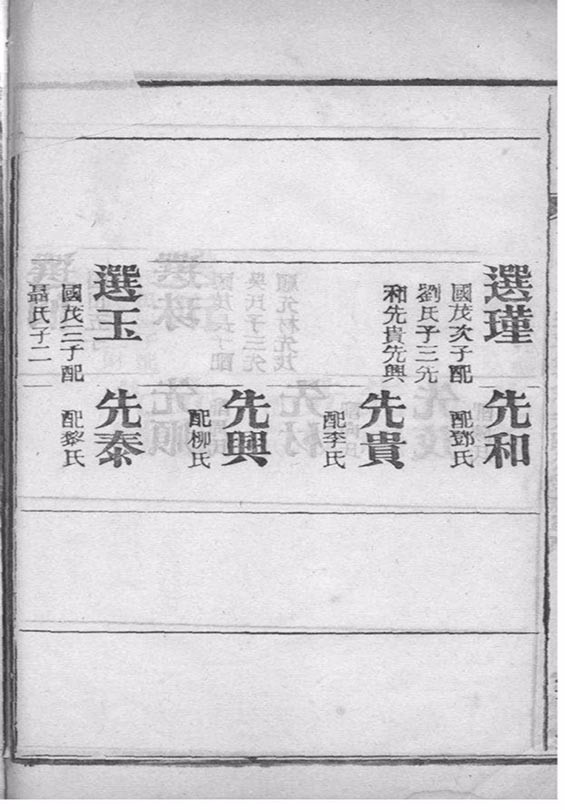 選瑾
國茂次子配
劉氏子三先
和先貴先興
先和
配鄧氏
先貴
配李氏
先興
配柳氏
選玉
國茂三子配
聶氏子二
先泰
配黎氏